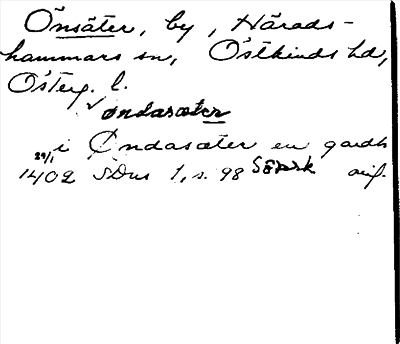 Önsäter, by, Härads-
hammars sn, Östkinds hd,
Österg. l.
✓ øndasæter
i Øndasæter en gardh
29/1 1402 SDns 1, s. 98 avj.